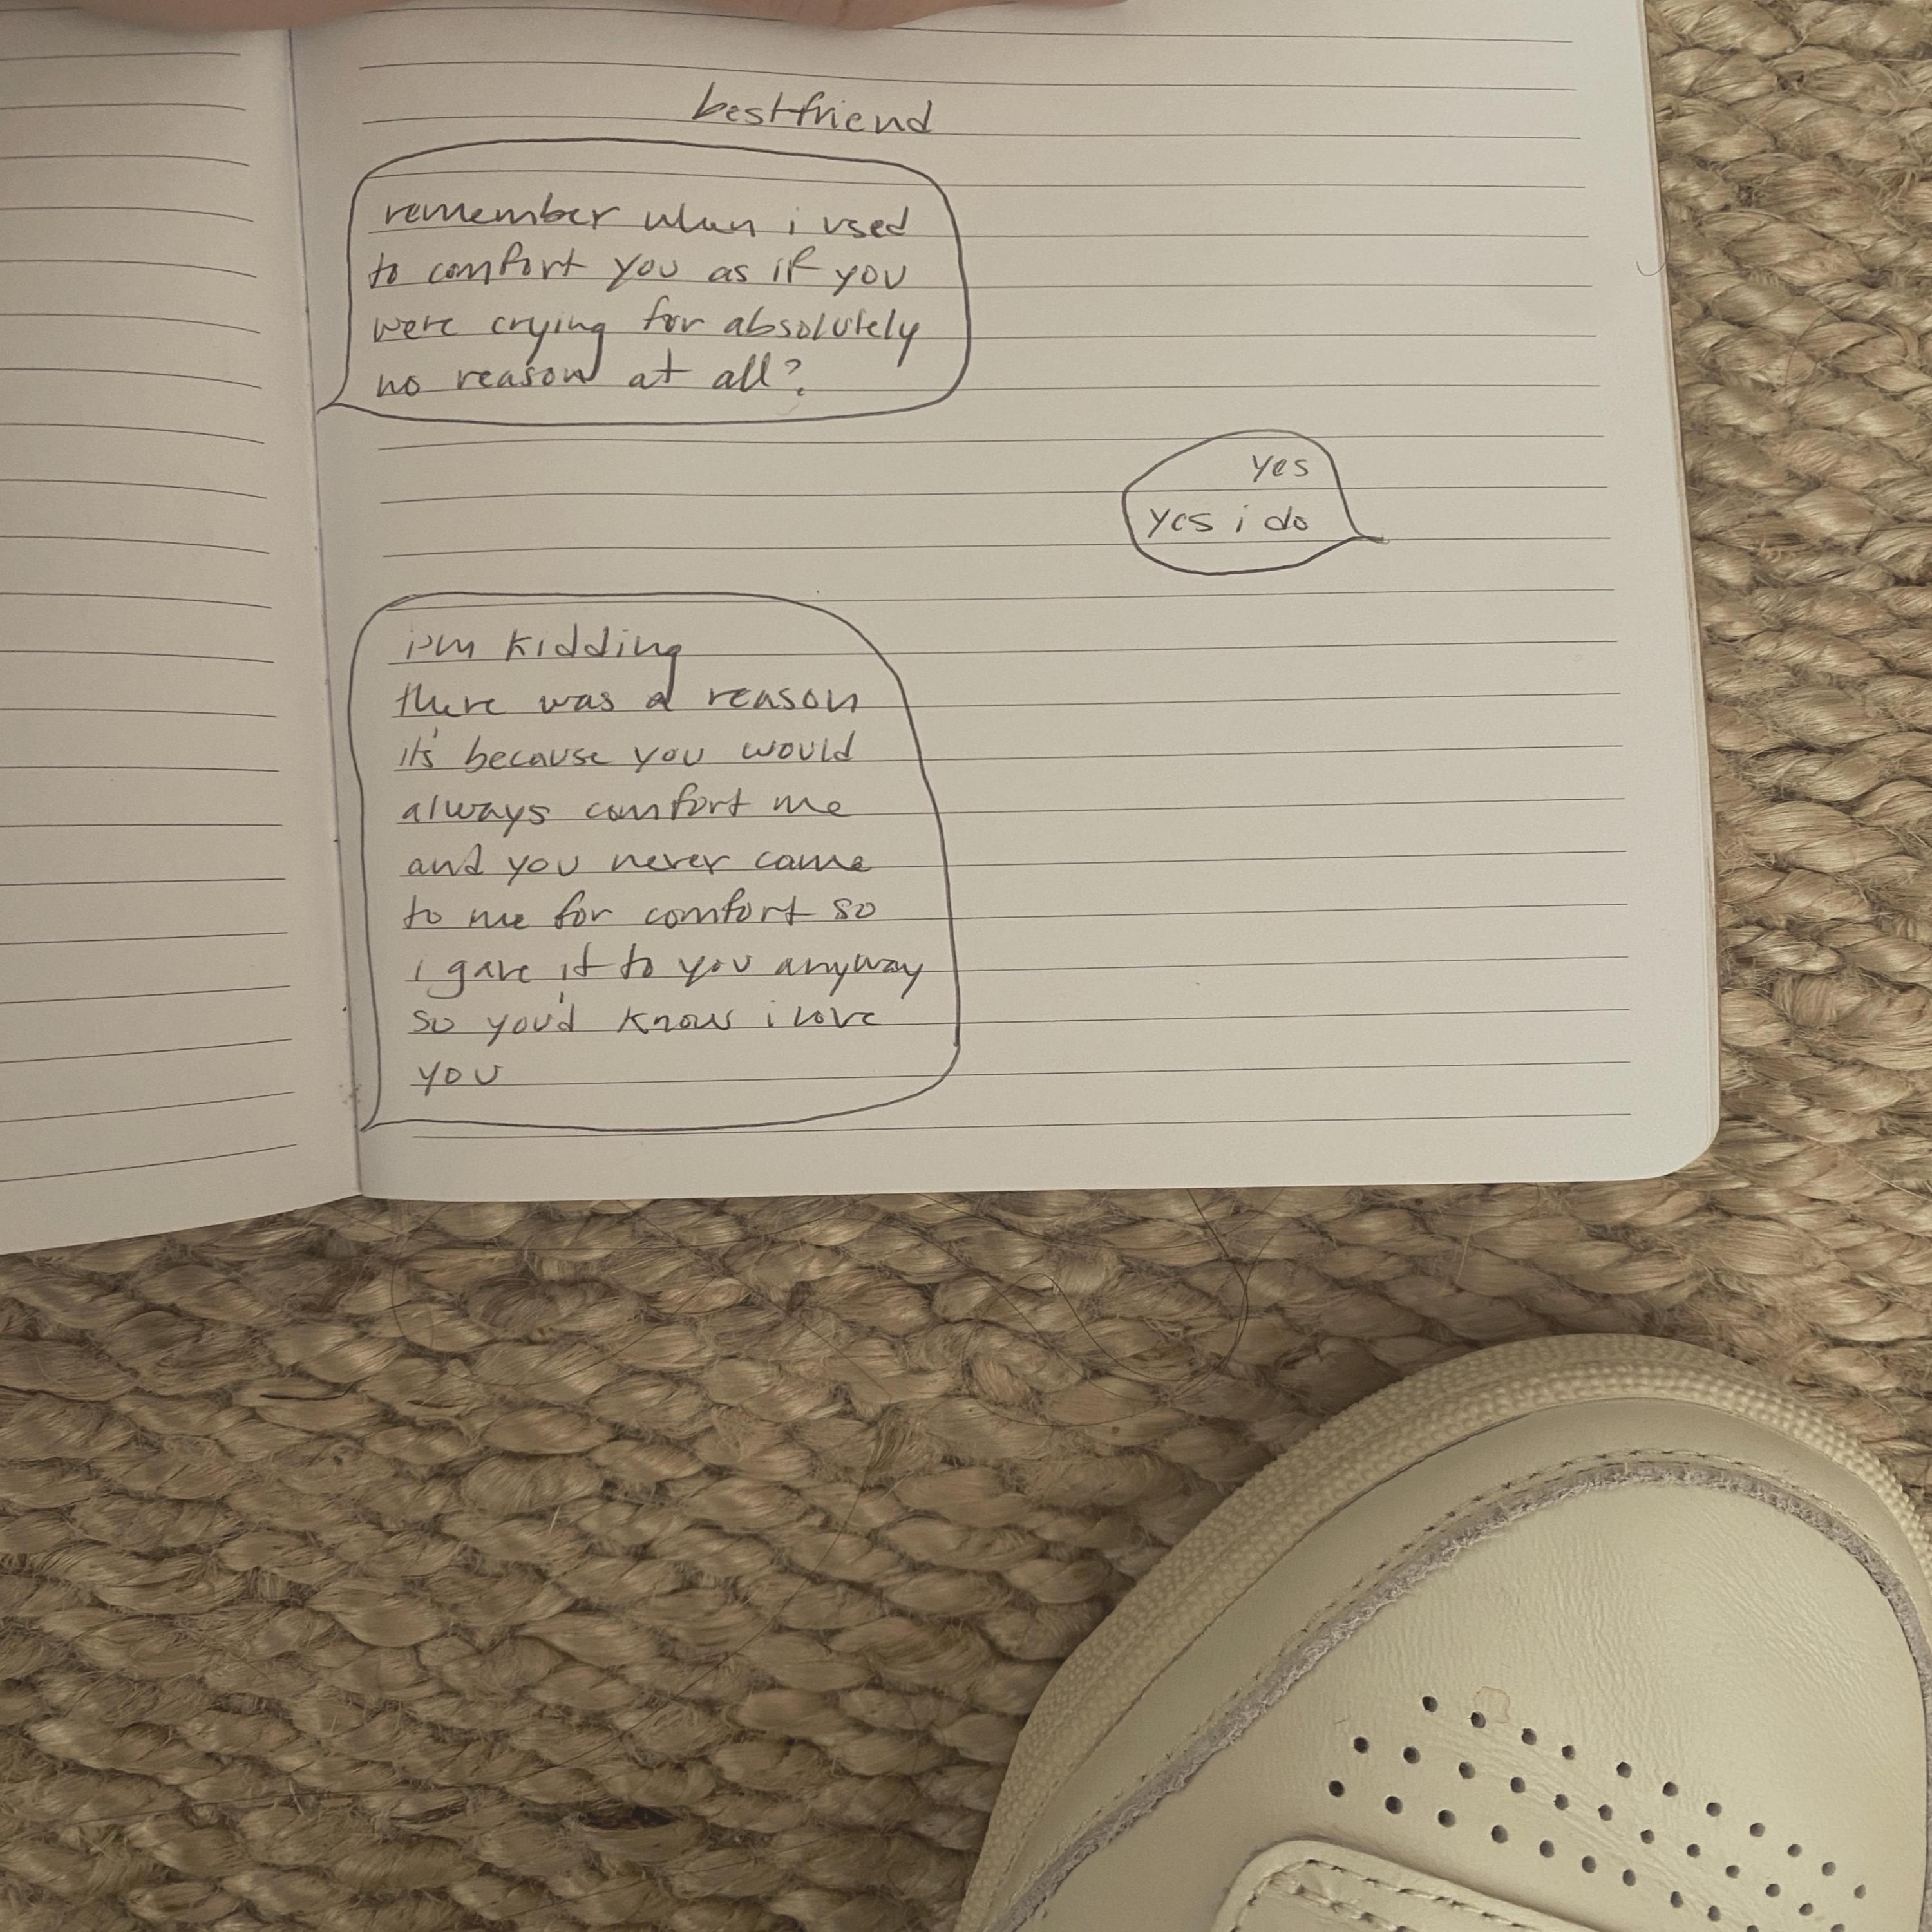 bestfriend
remember when i used
to comfort you as if you
were crying for absolutely
no reason at all?
yes
yes i do
i'm kidding
there was a reason
it's because you would
always comfort me
and you never came
to me for comfort so
i gave it to you anyway
so you'd know i love
you